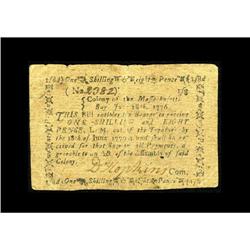 1s/8d) One Shilling & Eight Pence. 1/8d
(No. 2382) 1/8
Colony of the Massachusetts
Bay, June 18th, 1776.
THIS Bill entitles the Bearer to receive
ONE SHILLING and EIGHT
PENCE, L. M. out of the Treasury by the
18th of June and shall be re-
ceived for that Sum in all Payments, a-
greeable to an Act of the Assembly of said
Colony.
D Hopkins Com.
One Shilling & Eight Pence